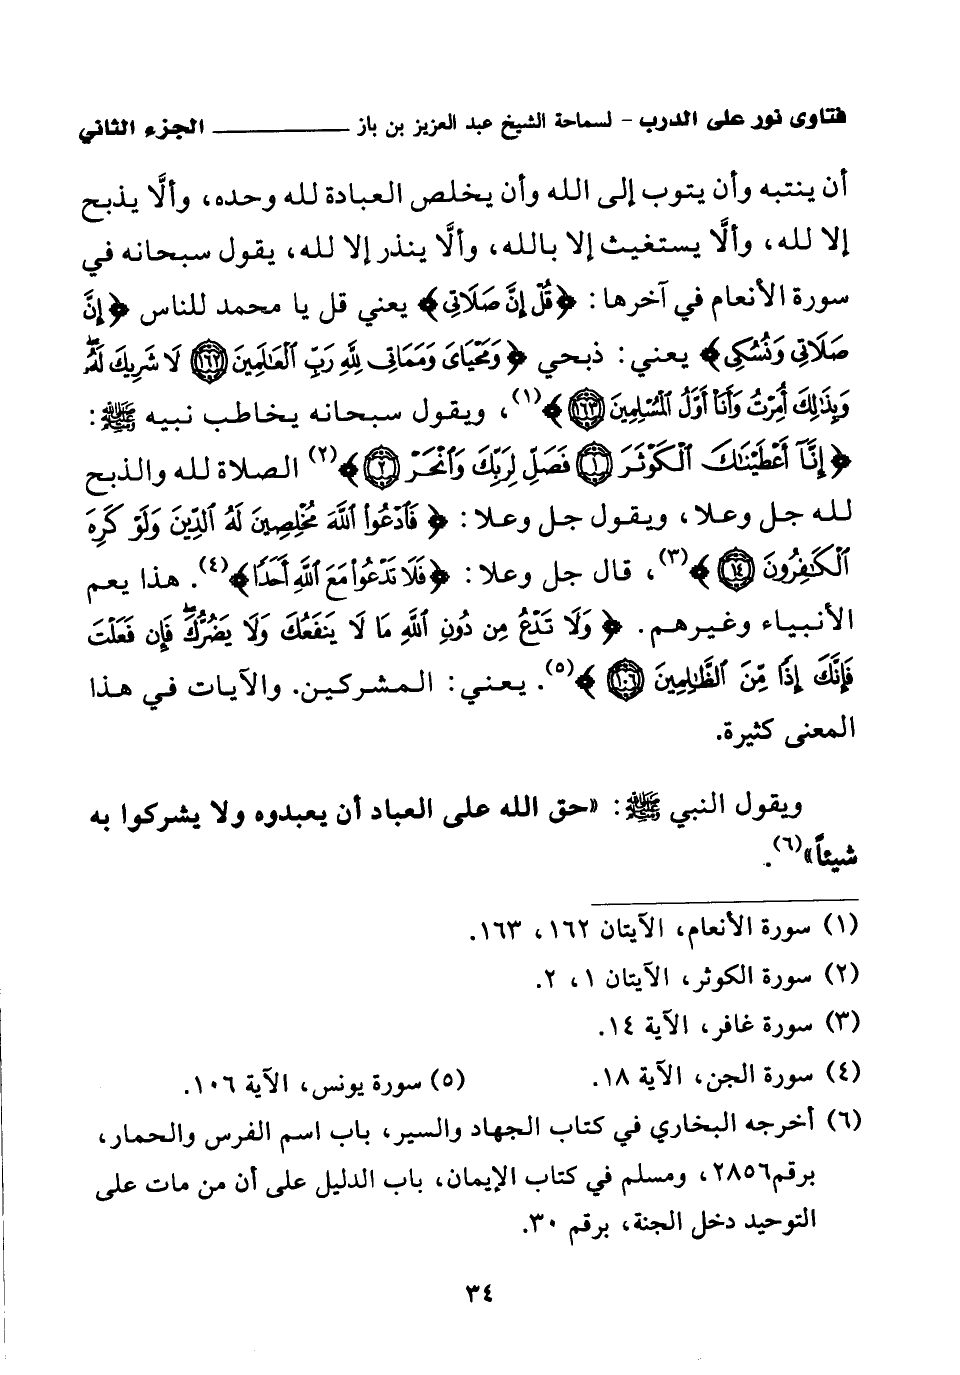 فتاوى نور على الدرب - لسماحة الشيخ عبد العزيز بن باز ــــــــــــ الجزء الثاني
أن ينتبه وأن يتوب إلى الله وأن يخلص العبادة لله وحده، وألَّا يذبح
إلا لله، وألَّا يستغيث إلا بالله، وألَّا ينذر إلا لله، يقول سبحانه في
سورة الأنعام في آخرها: ﴿قُلْ إِنَّ صَلَاتِي﴾ يعني قل يا محمد للناس ﴿إِنَّ
صَلَاتِي وَنُسُكِي﴾ يعني: ذبحي ﴿وَمَحْيَايَ وَمَمَاتِي لِلَّهِ رَبِّ ٱلْعَٰلَمِينَ ١٦٢ لَا شَرِيكَ لَهُۥۖ
وَبِذَٰلِكَ أُمِرْتُ وَأَنَا۠ أَوَّلُ ٱلْمُسْلِمِينَ ١٦٣﴾(١)، ويقول سبحانه يخاطب نبيه ﷺ:
﴿إِنَّآ أَعْطَيْنَٰكَ ٱلْكَوْثَرَ ١ فَصَلِّ لِرَبِّكَ وَٱنْحَرْ ٢﴾(٢) الصلاة لله والذبح
لله جل وعلا، ويقول جل وعلا: ﴿فَٱدْعُوا۟ ٱللَّهَ مُخْلِصِينَ لَهُ ٱلدِّينَ وَلَوْ كَرِهَ
ٱلْكَٰفِرُونَ ١٤﴾(٣)، قال جل وعلا: ﴿فَلَا تَدْعُوا۟ مَعَ ٱللَّهِ أَحَدًا﴾(٤). هذا يعم
الأنبياء وغيرهم. ﴿وَلَا تَدْعُ مِن دُونِ ٱللَّهِ مَا لَا يَنفَعُكَ وَلَا يَضُرُّكَۖ فَإِن فَعَلْتَ
فَإِنَّكَ إِذًا مِّنَ ٱلظَّٰلِمِينَ ١٠٦﴾(٥). يعني: المشركين. والآيات في هذا
المعنى كثيرة.
ويقول النبي ﷺ: «حق الله على العباد أن يعبدوه ولا يشركوا به
شيئاً»(٦).
(١) سورة الأنعام، الآيتان ١٦٢، ١٦٣.
(٢) سورة الكوثر، الآيتان ١، ٢.
(٣) سورة غافر، الآية ١٤.
(٤) سورة الجن، الآية ١٨. (٥) سورة يونس، الآية ١٠٦.
(٦) أخرجه البخاري في كتاب الجهاد والسير، باب اسم الفرس والحمار،
برقم٢٨٥٦، ومسلم في كتاب الإيمان، باب الدليل على أن من مات على
التوحيد دخل الجنة، برقم ٣٠.
٣٤